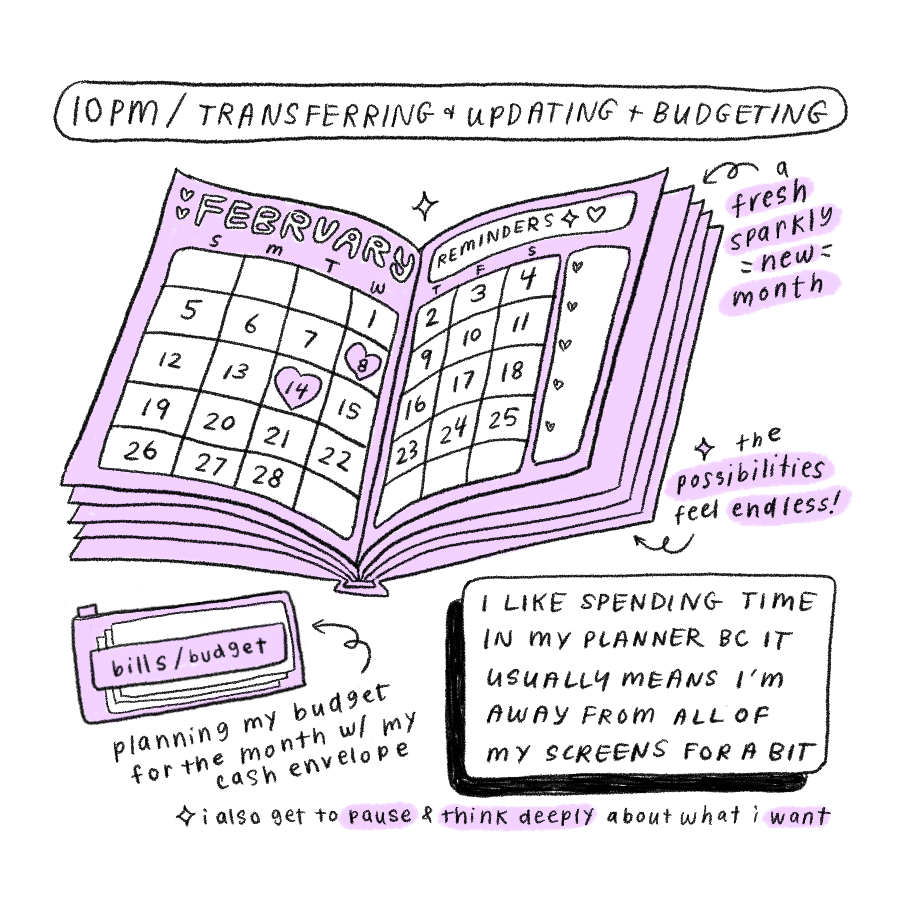 10PM / TRANSFERRING & UPDATING + BUDGETING
a
fresh
sparkly
=new=
month
FEBRUARY
S M T W
1
5 6 7 8
12 13 14 15
19 20 21 22
26 27 28
REMINDERS
T F S
2 3 4
9 10 11
16 17 18
23 24 25
the
possibilities
feel endless!
bills/budget
planning my budget
for the month w/ my
cash envelope
I LIKE SPENDING TIME
IN MY PLANNER BC IT
USUALLY MEANS I'M
AWAY FROM ALL OF
MY SCREENS FOR A BIT
i also get to pause & think deeply about what i want